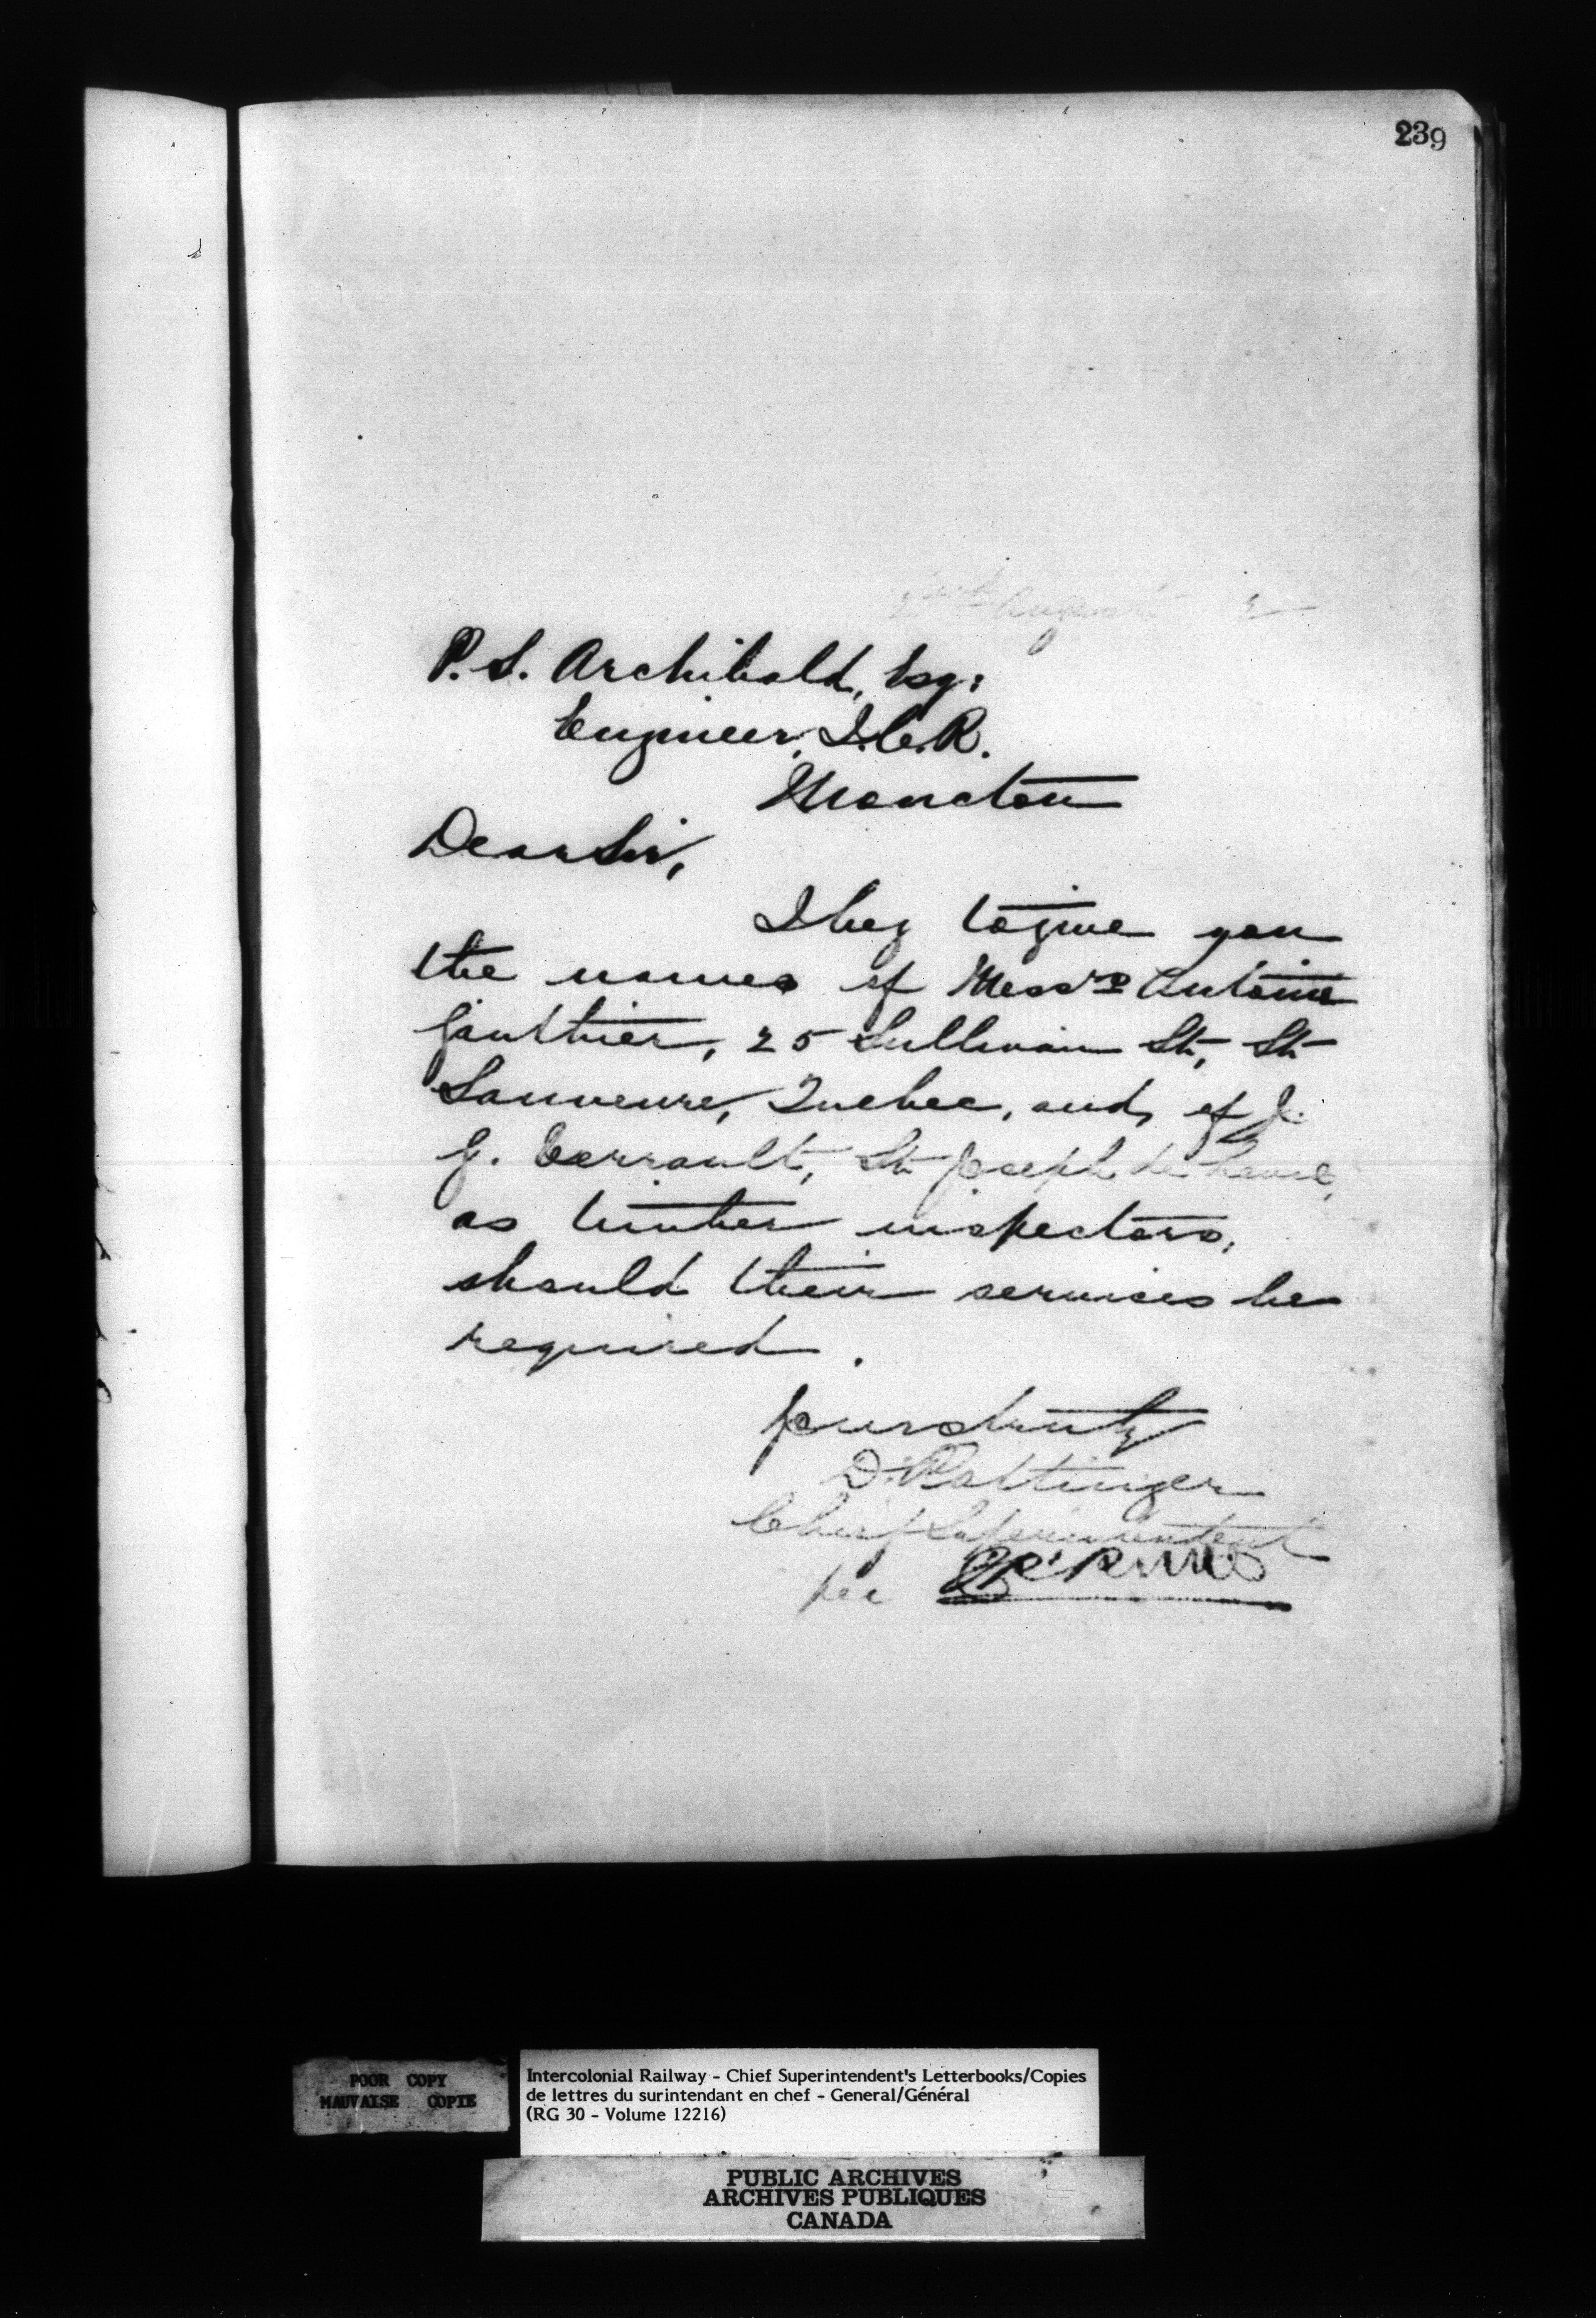 239
2nd August 2
P. S. Archibald, Esq:
Engineer, I.C.R.
Moncton
Dear Sir,
I beg to give you
the names of Messrs Antoine
Gauthier, 25 Sullivan St, St
Sauveure, Quebec, and of J.
G. Carrault, St Joseph de Levis,
as timber inspectors,
should their services be
required.
Yours truly
D. Pottinger
Chief Superintendent
per
POOR COPY
MAUVAISE COPIE
Intercolonial Railway - Chief Superintendent's Letterbooks/Copies
de lettres du surintendant en chef - General/Général
(RG 30 - Volume 12216)
PUBLIC ARCHIVES
ARCHIVES PUBLIQUES
CANADA